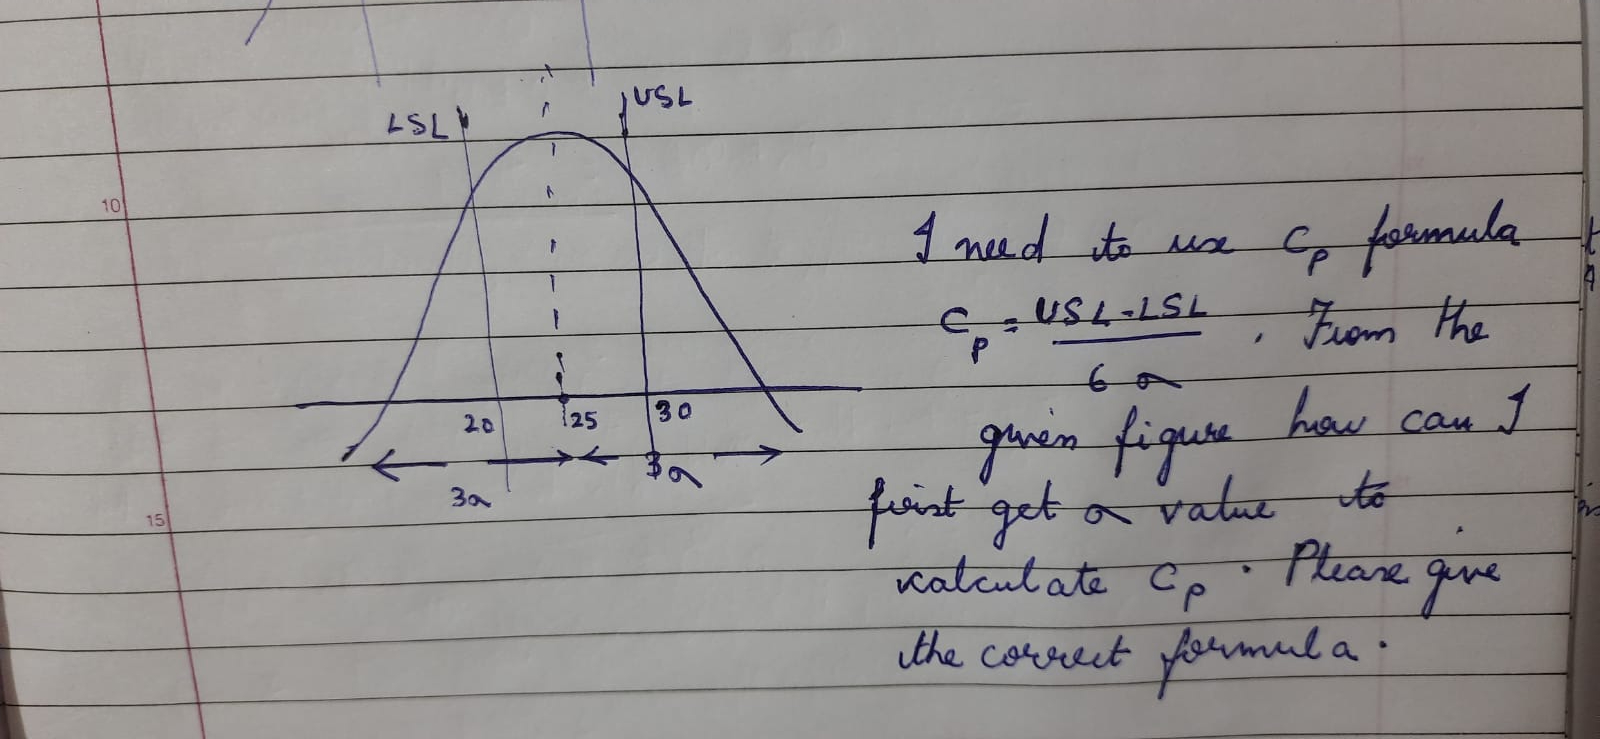 LSL
USL
10
20
25
30
3σ
3σ
15
I need to use Cp formula
Cp = USL-LSL
6 σ
. From the
given figure how can I
first get σ value to
calculate Cp . Please give
the correct formula .